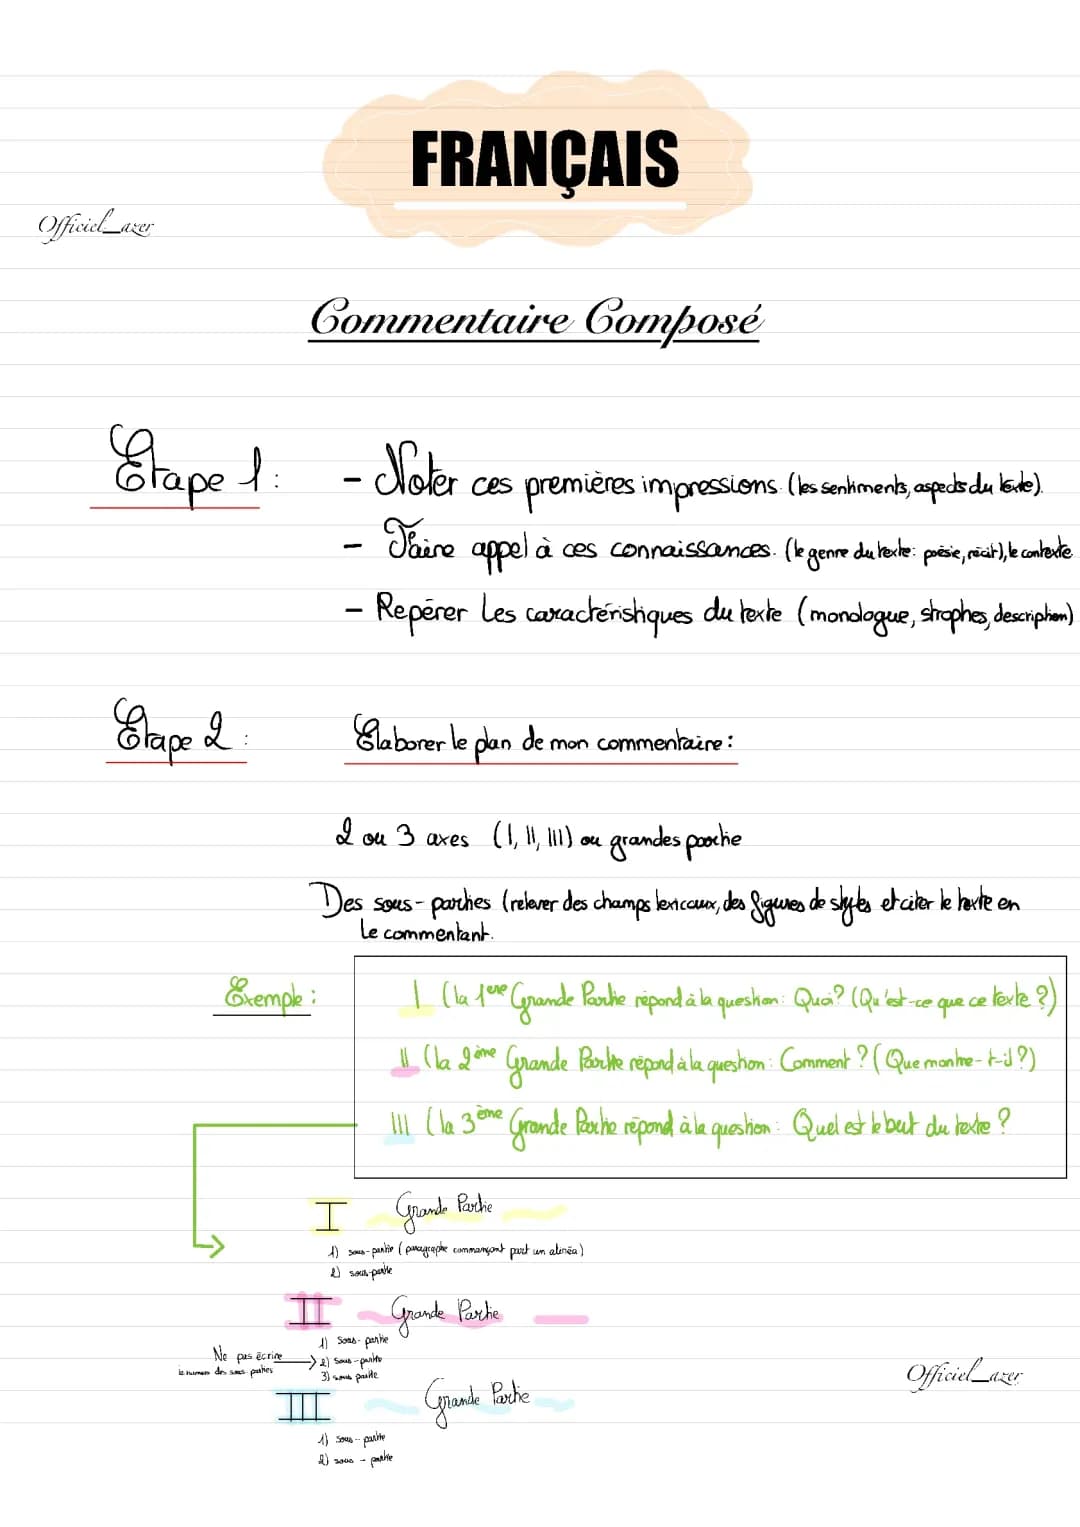 FRANÇAIS
Officiel_azer
Commentaire Composé
Étape 1:
- Noter ces premières impressions. (les sentiments, aspects du texte).
- Faire appel à ces connaissances. (le genre du texte: poèsie, récit), le contexte
- Repérer Les caractéristiques du texte (monologue, strophes, description)
Étape 2: Elaborer le plan de mon commentaire:
2 ou 3 axes (I, II, III) ou grandes partie
Des sous-parties (relever des champs lexicaux, des figures de styles et citer le texte en
le commentant.
Exemple:
I (la 1ere Grande Partie répond à la question: Quoi? (Qu'est-ce que ce texte?)
II (la 2ème Grande Partie répond à la question: Comment? (Que montre-t-il?)
III (la 3ème Grande Partie répond à la question: Quel est le but du texte?
I Grande Partie
1) sous-partie (paragraphe commançant part un alinéa)
2) sous-partie
II Grande Partie
1) Sous-partie
Ne pas écrire
2) sous-partie
le numéro des sous parties
3) sous partie
III Grande Partie
Officiel_azer
1) sous-partie
2) sous-partie